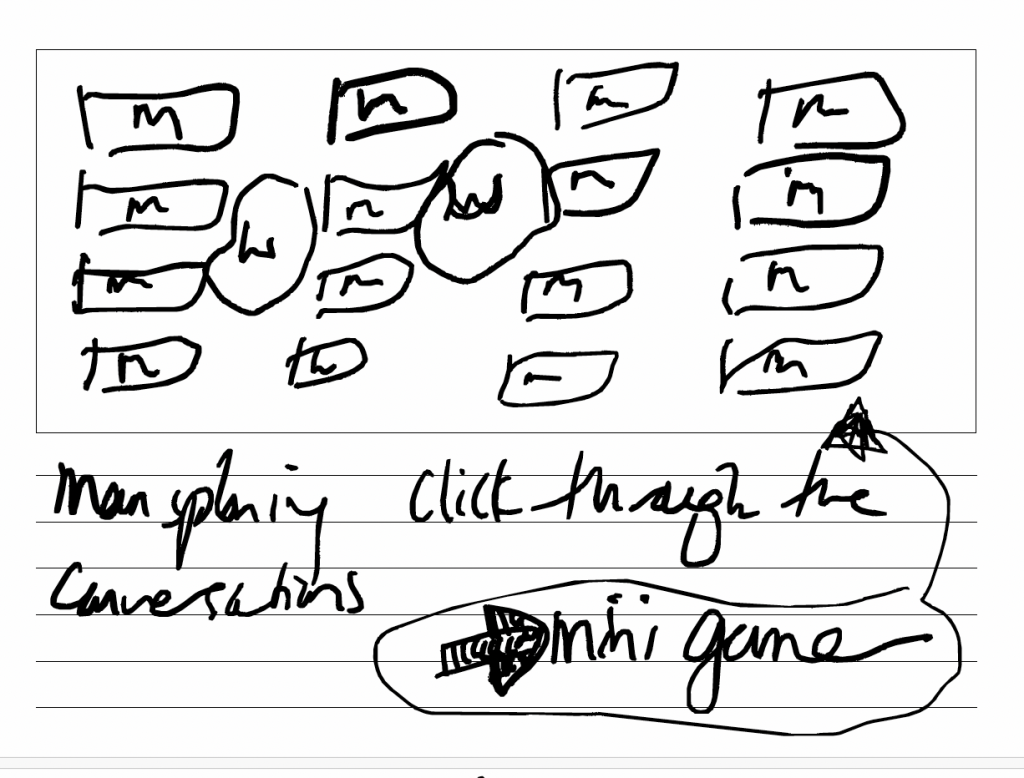 m n m m
m n n m
W W
m m m n
m n m
Mansplaining Click through the
Conversations
mini game